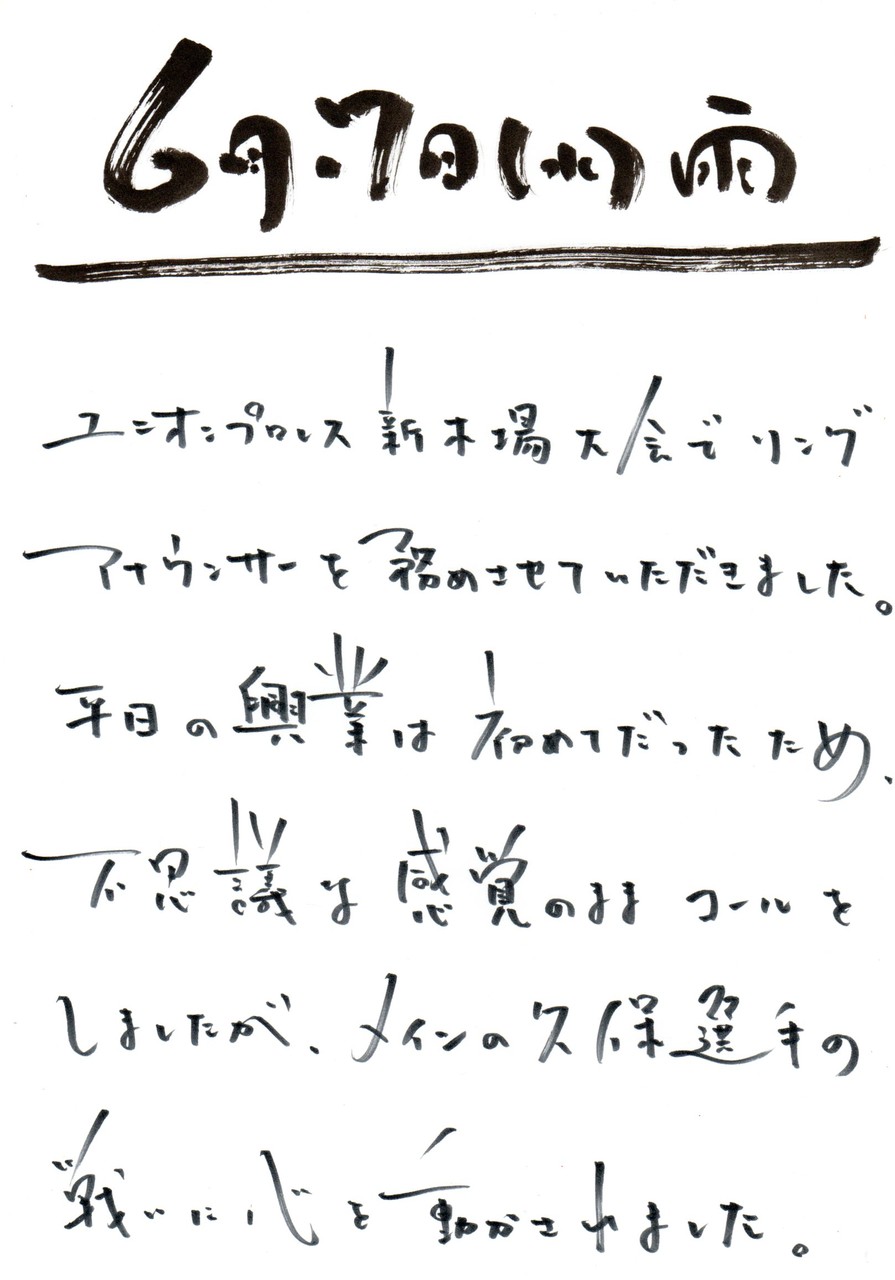 6月7日(水)雨
ユニオンプロレス新木場大会でリング
アナウンサーを務めさせていただきました。
平日の興業は初めてだったため、
不思議な感覚のままコールを
しましたが、メインの久保選手の
戦いに心を動かされました。